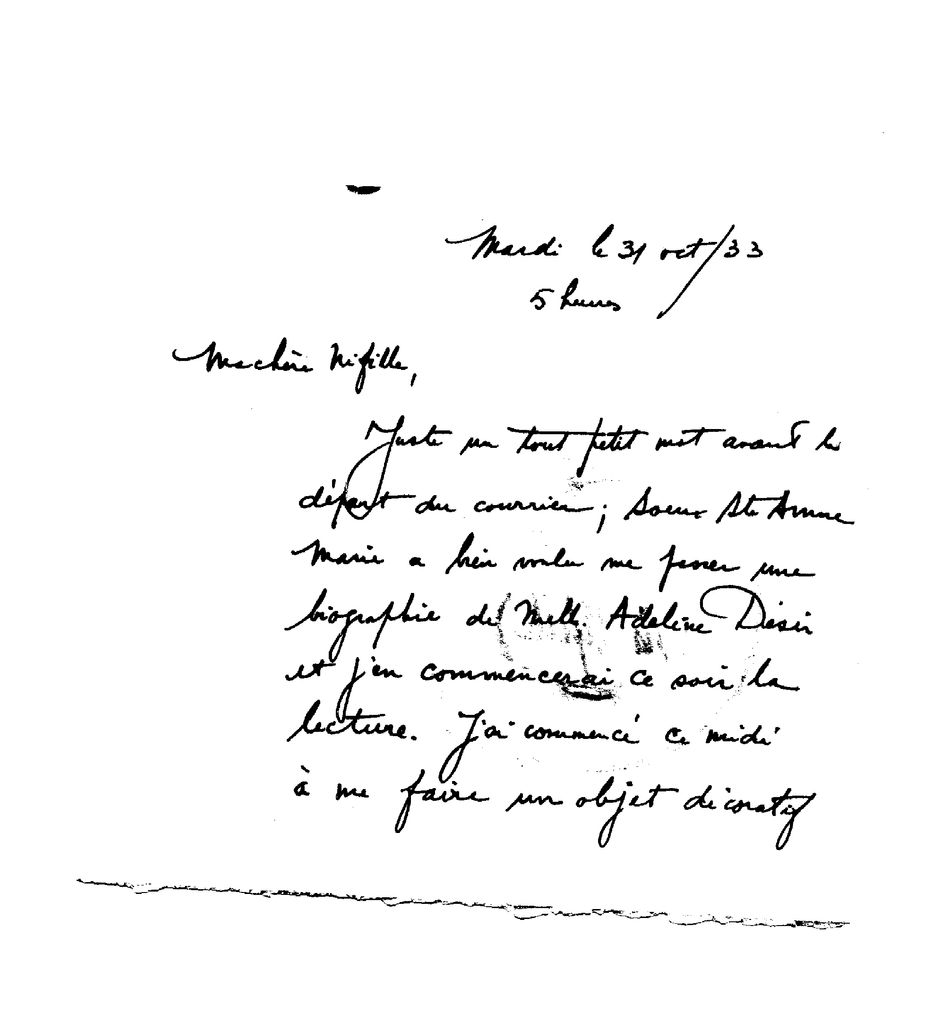 Mardi le 31 oct/33
5 heures
Ma chère Nifille,
Juste un tout petit mot avant le
départ du courrier; Soeur Ste Anne
Marie a bien voulu me passer une
biographie de Melle. Adeline Désir
et j'en commencerai ce soir la
lecture. J'ai commencé ce midi
à me faire un objet décoratif